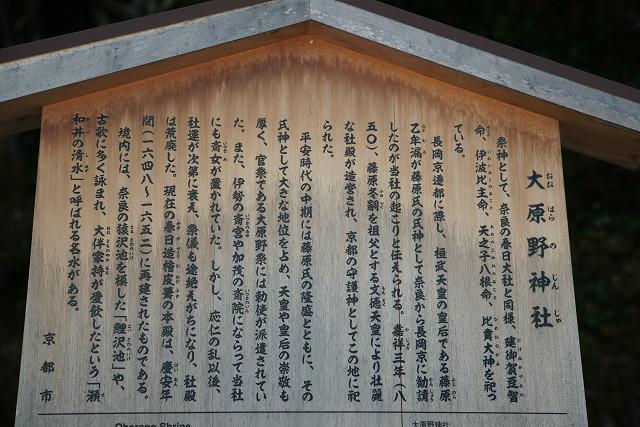 大原野神社
祭神として、奈良の春日大社と同様、建御賀豆智
命、伊波比主命、天之子八根命、比賣大神を祀っ
ている。
長岡京遷都に際し、桓武天皇の皇后である藤原
乙牟漏が藤原氏の氏神として奈良から長岡京に勧請
したのが当社の起こりと伝えられる。嘉祥三年(八
五〇)、藤原冬嗣を祖父とする文徳天皇により壮麗
な社殿が造営され、京都の守護神としてこの地に祀
られた。
平安時代の中期には藤原氏の隆盛とともに、その
氏神として大きな地位を占め、天皇や皇后の崇敬も
厚く、官祭である大原野祭には勅使が派遣されてい
た。また、伊勢の斎宮や加茂の斎院にならって当社
にも斎女が置かれていた。しかし、応仁の乱以後、
社運が次第に衰え、祭儀も途絶えがちになり、社殿
は荒廃した。現在の春日造檜皮葺の本殿は、慶安年
間(一六四八〜一六五二)に再建されたものである。
境内には、奈良の猿沢池を模した「鯉沢池」や、
古歌に多く詠まれ、大伴家持が愛飲したという「瀬
和井の清水」と呼ばれる名水がある。
京都市
Oharano Shrine
大原野神社